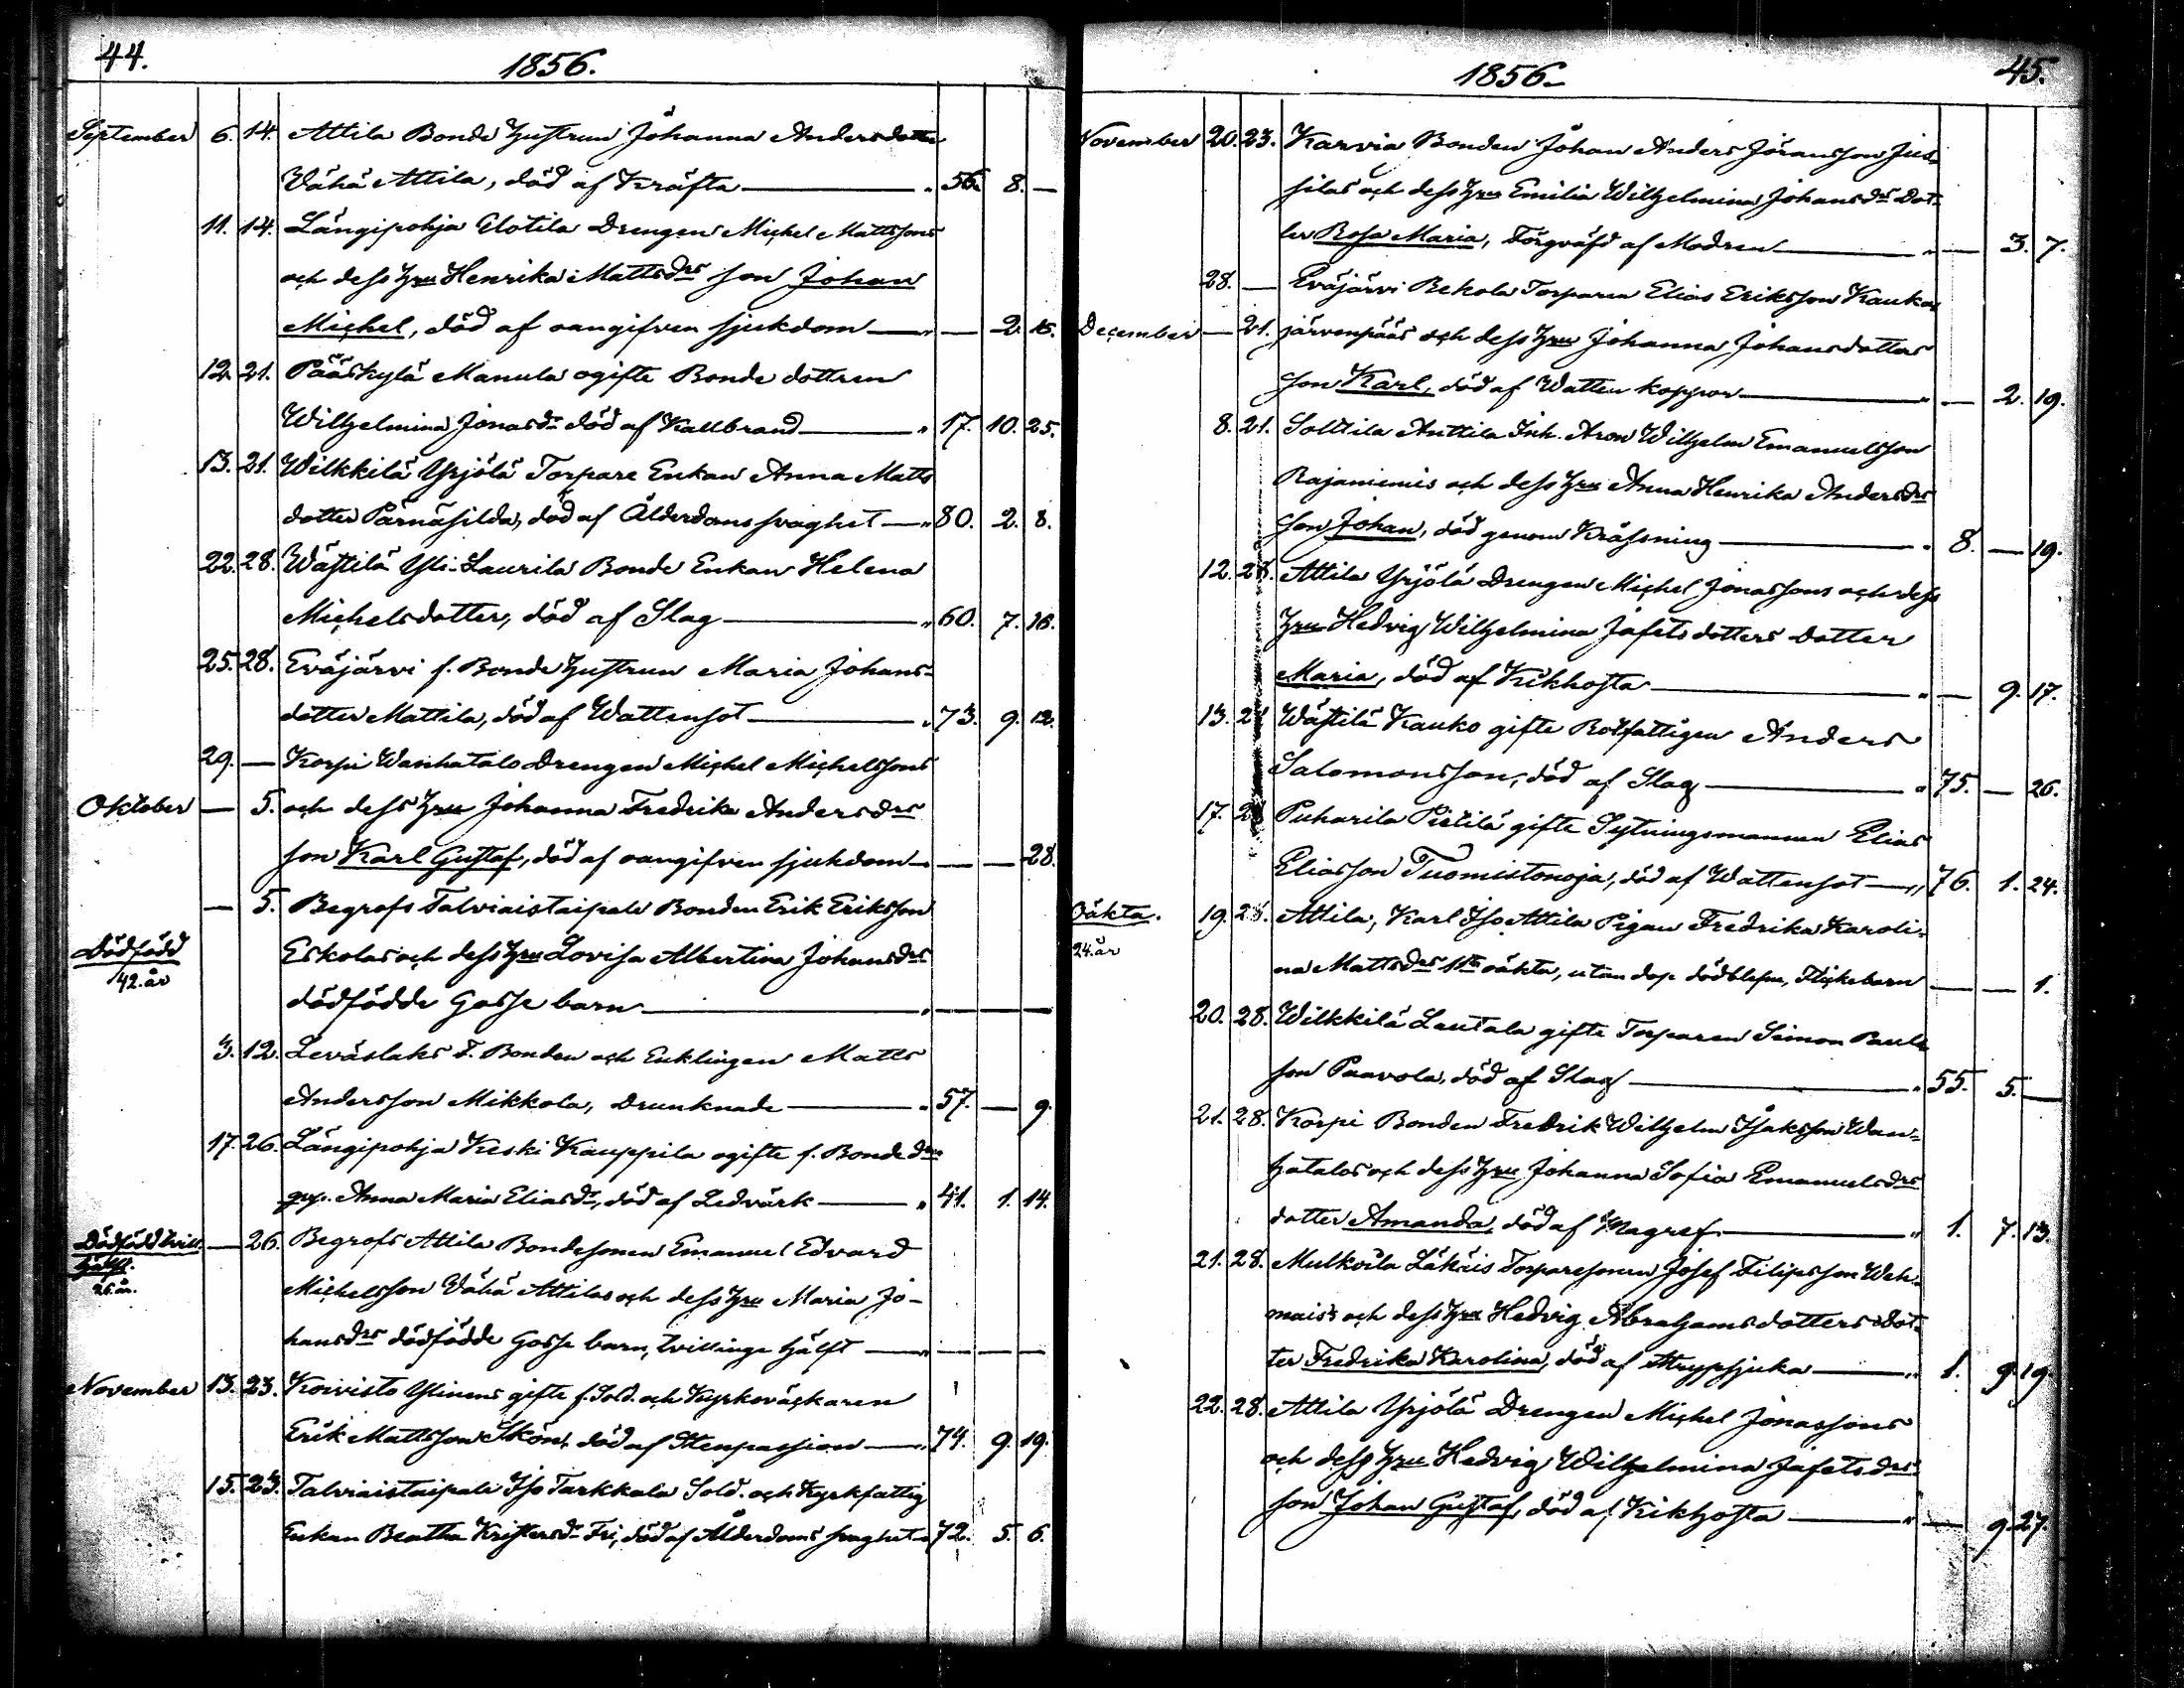 44.
1856.
September 6. 14. Attila Bonde Hustrun Johanna Andersdotter
Wähä Attila, död af Kräfta — " 56. 8. —
11. 14. Längipohja Alotila Drengen Michel Mattssons
och dess Hru Henrika Mattsdrs son Johan
Michel, död af oangifven sjukdom — " — 2. 15.
12. 21. Pääskylä Manula ogifte Bonde dottren
Wilhelmina Jonasdr död af Kallbrand — " 17. 10. 25.
13. 21. Wilkkilä Yrjölä Torpare Enkan Anna Matts
dotter Pärnäsilda, död af Ålderdoms svaghet — " 80. 2. 8.
22. 28. Wästilä Yli-Laurila Bonde Enkan Helena
Michelsdotter, död af Slag — " 60. 7. 16.
25. 28. Eväjärvi f. Bonde Hustrun Maria Johans-
dotter Mattila, död af Wattensot — " 73. 9. 12.
29. — Korpi Wanhatalo Drengen Michel Michelssons
Oktober — 5. och dess Hru Johanna Fredrika Andersdrs
son Karl Gustaf, död af oangifven sjukdom — " — — 28.
— 5. Begrofs Talviaistaipale Bonden Erik Eriksson
Dödfödd
42. år
Eskolas och dess Hru Lovisa Albertina Johansdrs
dödfödde Gosse barn — " — — —
3. 12. Leväslaks F. Bonden och Enklingen Matts
Andersson Mikkola, Drunknade — " 57. — 9.
17. 26. Längipohja Keski Kauppila ogifte f. Bonde drn
Anna Maria Eliasdr, död af Ledvärk — " 41. 1. 14.
Dödfödd tvill.
hälft.
26. år.
— 26. Begrofs Attila Bondesonen Emanuel Edvard
Michelsson Wähä Attilas och dess Hru Maria Jo-
hansdrs dödfödde Gosse barn, tvillinge hälft — " — — —
November 13. 23. Koivisto Ylinens gifte f. Sold. och Kyrkoväckaren
Erik Mattsson Skön, död af Stenpassion — " 74. 9. 19.
15. 23. Talviaistaipale Iso Tarkkala Sold. och Kyrkfattig
Enkan Beatha Kristersdr Fri, död af Ålderdoms svaghet " 72. 5. 6.
1856.
45.
November 20. 23. Karvia Bonden Johan Anders Jöransson Jus-
silas och dess Hru Emilia Wilhelmina Johansdrs Dot-
ter Rosa Maria, Förqväfd af Modren — " — 3. 7.
28. — Eväjärvi Rekola Torparen Elias Eriksson Kauka
December — 21. järvenpääs och dess Hru Johanna Johansdotters
son Karl, död af Watten koppor — " — 2. 19.
8. 21. Solttila Anttila Inh. Aron Wilhelm Emanuelsson
Rajaniemis och dess Hru Anna Henrika Andersdrs
son Johan, död genom Krässning — " 8. — 19.
12. 28. Attila Yrjölä Drengen Michel Jonassons och dess
Hru Hedvig Wilhelmina Jafetsdotters dotter
Maria, död af Kikhosta — " — 9. 17.
13. 21 Wästilä Kauko gifte Rotfattigen Anders
Salomonsson, död af Slag — " 75. — 26.
17. 2 Puharila Pietilä gifte Sytningsmannen Elias
Eliasson Tuomistonoja, död af Wattensot — " 76. 1. 24.
Oäkta.
24. år
19. 28. Attila, Karl Iso Attila Pigan Fredrika Karoli-
na Mattsdrs 1sta oäkta, utan dop dödblefne, Flickebarn — — 1.
20. 28. Wilkkilä Lautala gifte Torparen Simon Pauls
son Paavola, död af Slag — " 55. 5. —
21. 28. Korpi Bonden Fredrik Wilhelm Isaksson Wan-
hatalos och dess Hru Johanna Sofia Emanuelsdrs
dotter Amanda, död af Magref — " 1. 7. 13.
21. 28. Mulkoila Läköis Torparesonen Josef Filipsson Weh-
mais's och dess Hru Hedvig Abrahamsdotters Dot-
ter Fredrika Karolina, död af Strypsjuka — " 1. 9. 19.
22. 28. Attila Yrjölä Drengen Michel Jonassons
och dess Hru Hedvig Wilhelmina Jafetsdrs
son Johan Gustaf, död af Kikhosta — " — 9. 27.